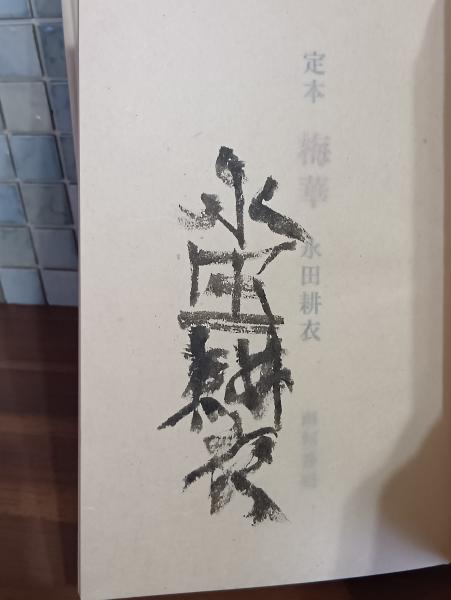 定本 梅華 永田耕衣
永田耕衣